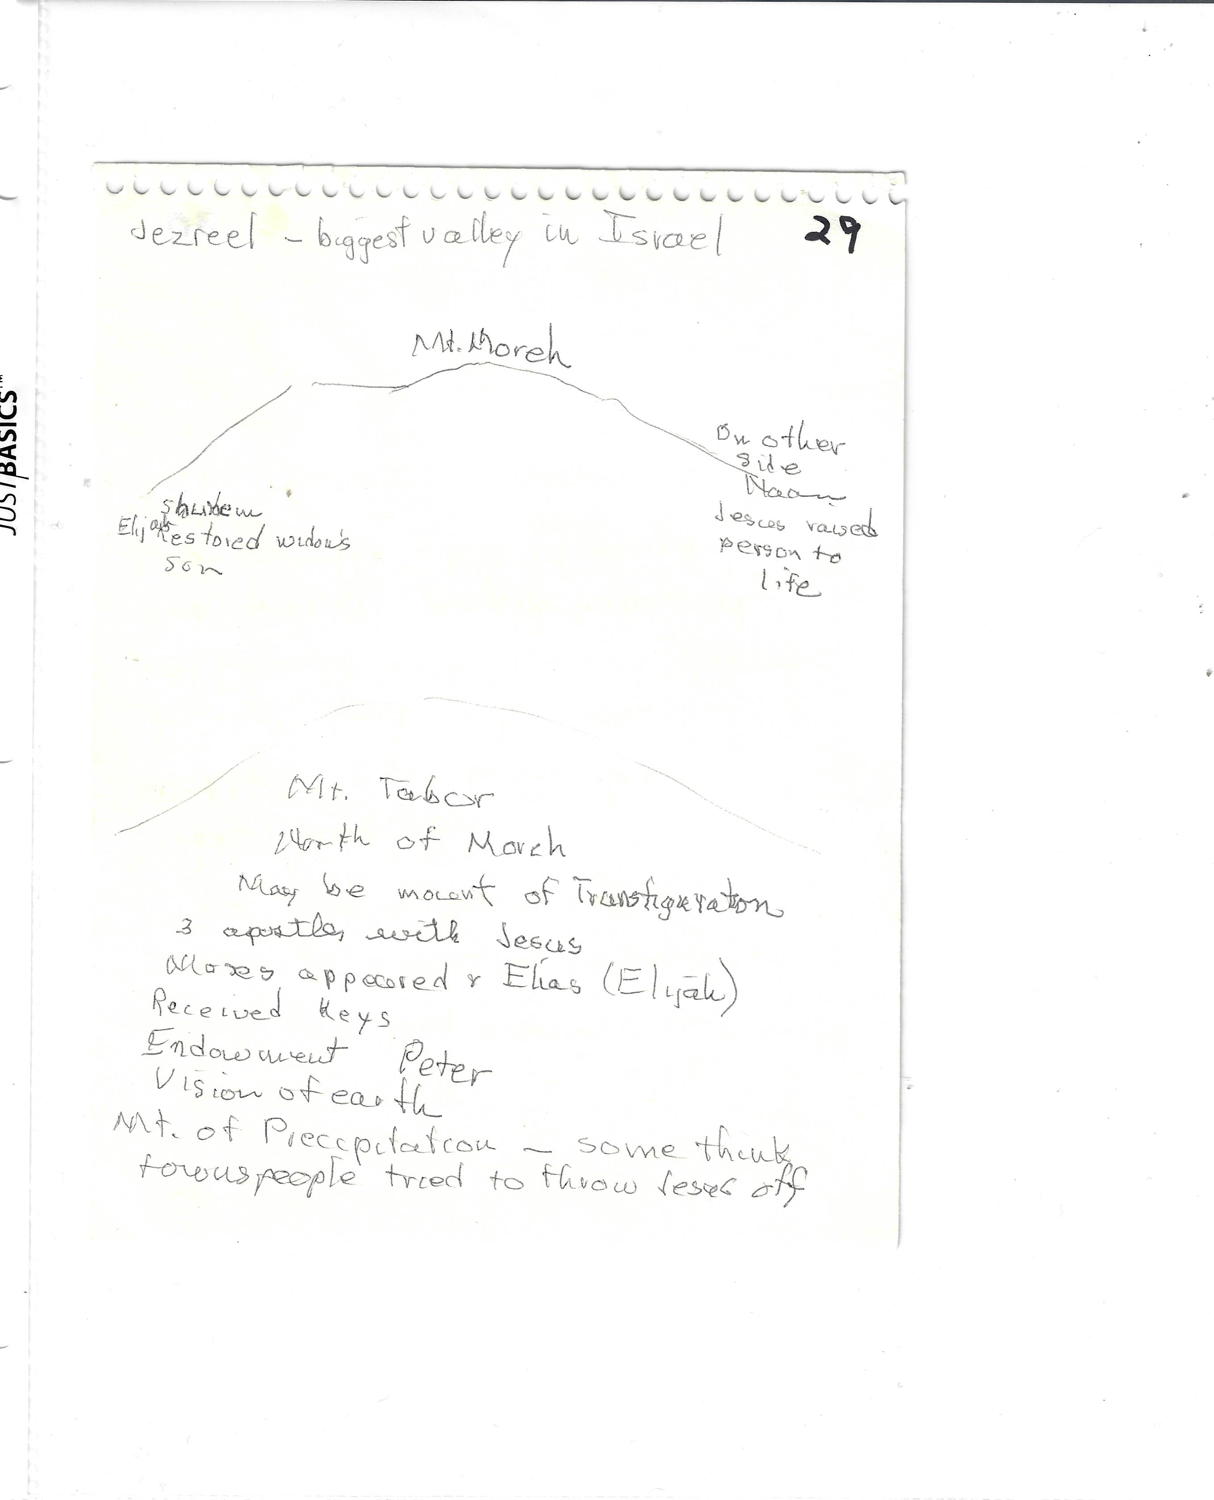 Jezreel – biggest valley in Israel 29
Mt. Moreh
On other
side
Naan
Jesus raised
person to
life
Shunem
Elijah restored widow's
son
Mt. Tabor
North of Moreh
May be mount of Transfiguraton
3 apostles with Jesus
Moses appeared & Elias (Elijah)
Received Keys
Endowment Peter
Vision of earth
Mt. of Precipitation – some think
townspeople tried to throw Jesus off
JUST/BASICS™